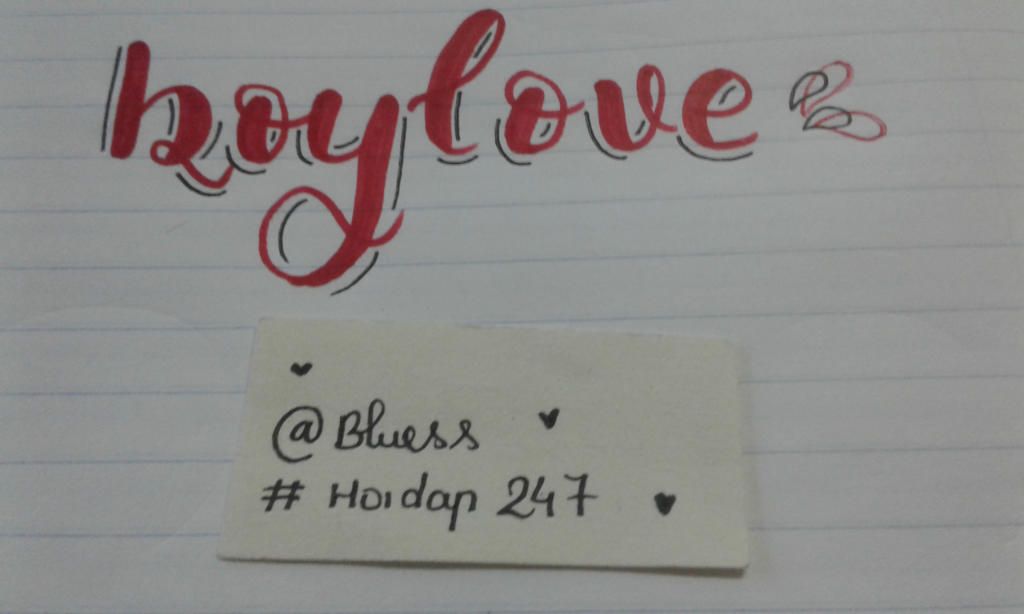 boylove
@Bluess
# Hoidap 247